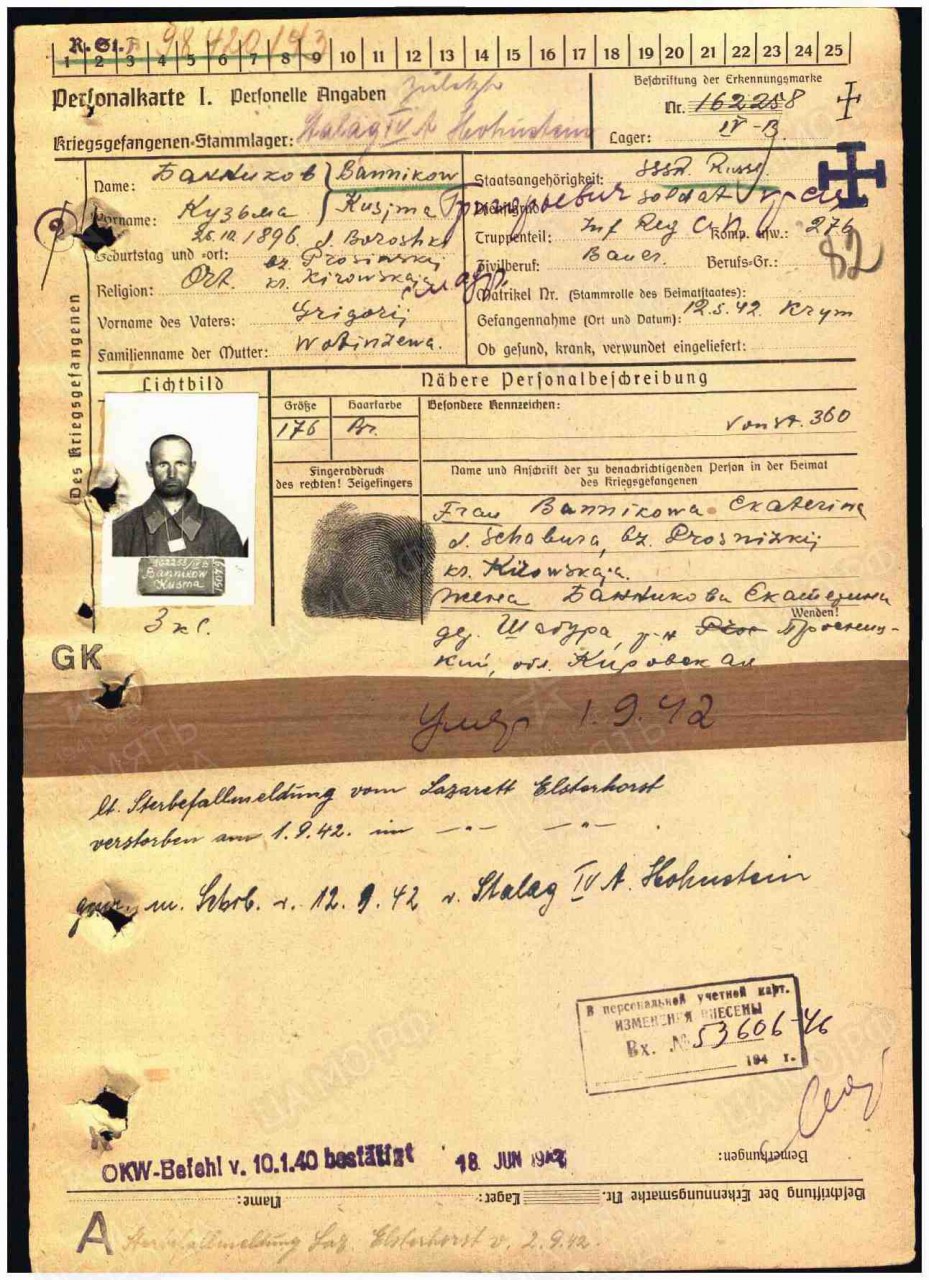 R. St. A 98420/43
1 2 3 4 5 6 7 8 9 10 11 12 13 14 15 16 17 18 19 20 21 22 23 24 25
Personalkarte I. Personelle Angaben
Beschriftung der Erkennungsmarke
Nr. 162258
Kriegsgefangenen-Stammlager: Stalag IV A Hohnstein
Lager: IV-B
Des Kriegsgefangenen
Name: Банников Bannikow
Vorname: Кузьма Kusjma Григорьевич
Geburtstag und -ort: 26.10.1896. d. Boroshki
bz. Prosinskij
kr. Kirowskaja
Religion: Ort.
Vorname des Vaters: Grigorij
Familienname der Mutter:
Staatsangehörigkeit: Russe.
Dienstgrad: Soldat
Truppenteil: Inf Reg Komp. usw.: 276
Zivilberuf: Bauer. Berufs-Gr.:
82
Matrikel Nr. (Stammrolle des Heimatstaates):
Gefangennahme (Ort und Datum): 12.5.42. Krym
Ob gesund, krank, verwundet eingeliefert:
Lichtbild
Nähere Personalbeschreibung
Größe Haarfarbe Besondere Kennzeichen:
176 Br.
Von St. 360
Fingerabdruck
des rechten! Zeigefingers
Name und Anschrift der zu benachrichtigenden Person in der Heimat
des Kriegsgefangenen
Frau Bannikowa Ekaterina
d. Schabura, bz. Prosnizkij
kr. Kirowskaja.
жена Банникова Екатерина
Wenden!
дер. Шабура, р-н Просниц-
кий, обл. Кировская
Bannikow
Kusma
GK
Умер 1.9.42
lt. Sterbefallmeldung vom Lazarett Elsterhorst
verstorben am 1.9.42. im -"- -"-
gem. m. Schrb. v. 12.9.42 v. Stalag IV A. Hohnstein
В персональной учетной карт.
ИЗМЕНЕНИЯ ВНЕСЕНЫ
Вх. № 53606-46
194 г.
OKW-Befehl v. 10.1.40 bestätigt 18. JUN 1942
Bemerkungen:
Beschriftung der Erkennungsmarke Nr. Lager: Name:
A
Sterbefallmeldung Laz. Elsterhorst v. 2.9.42.